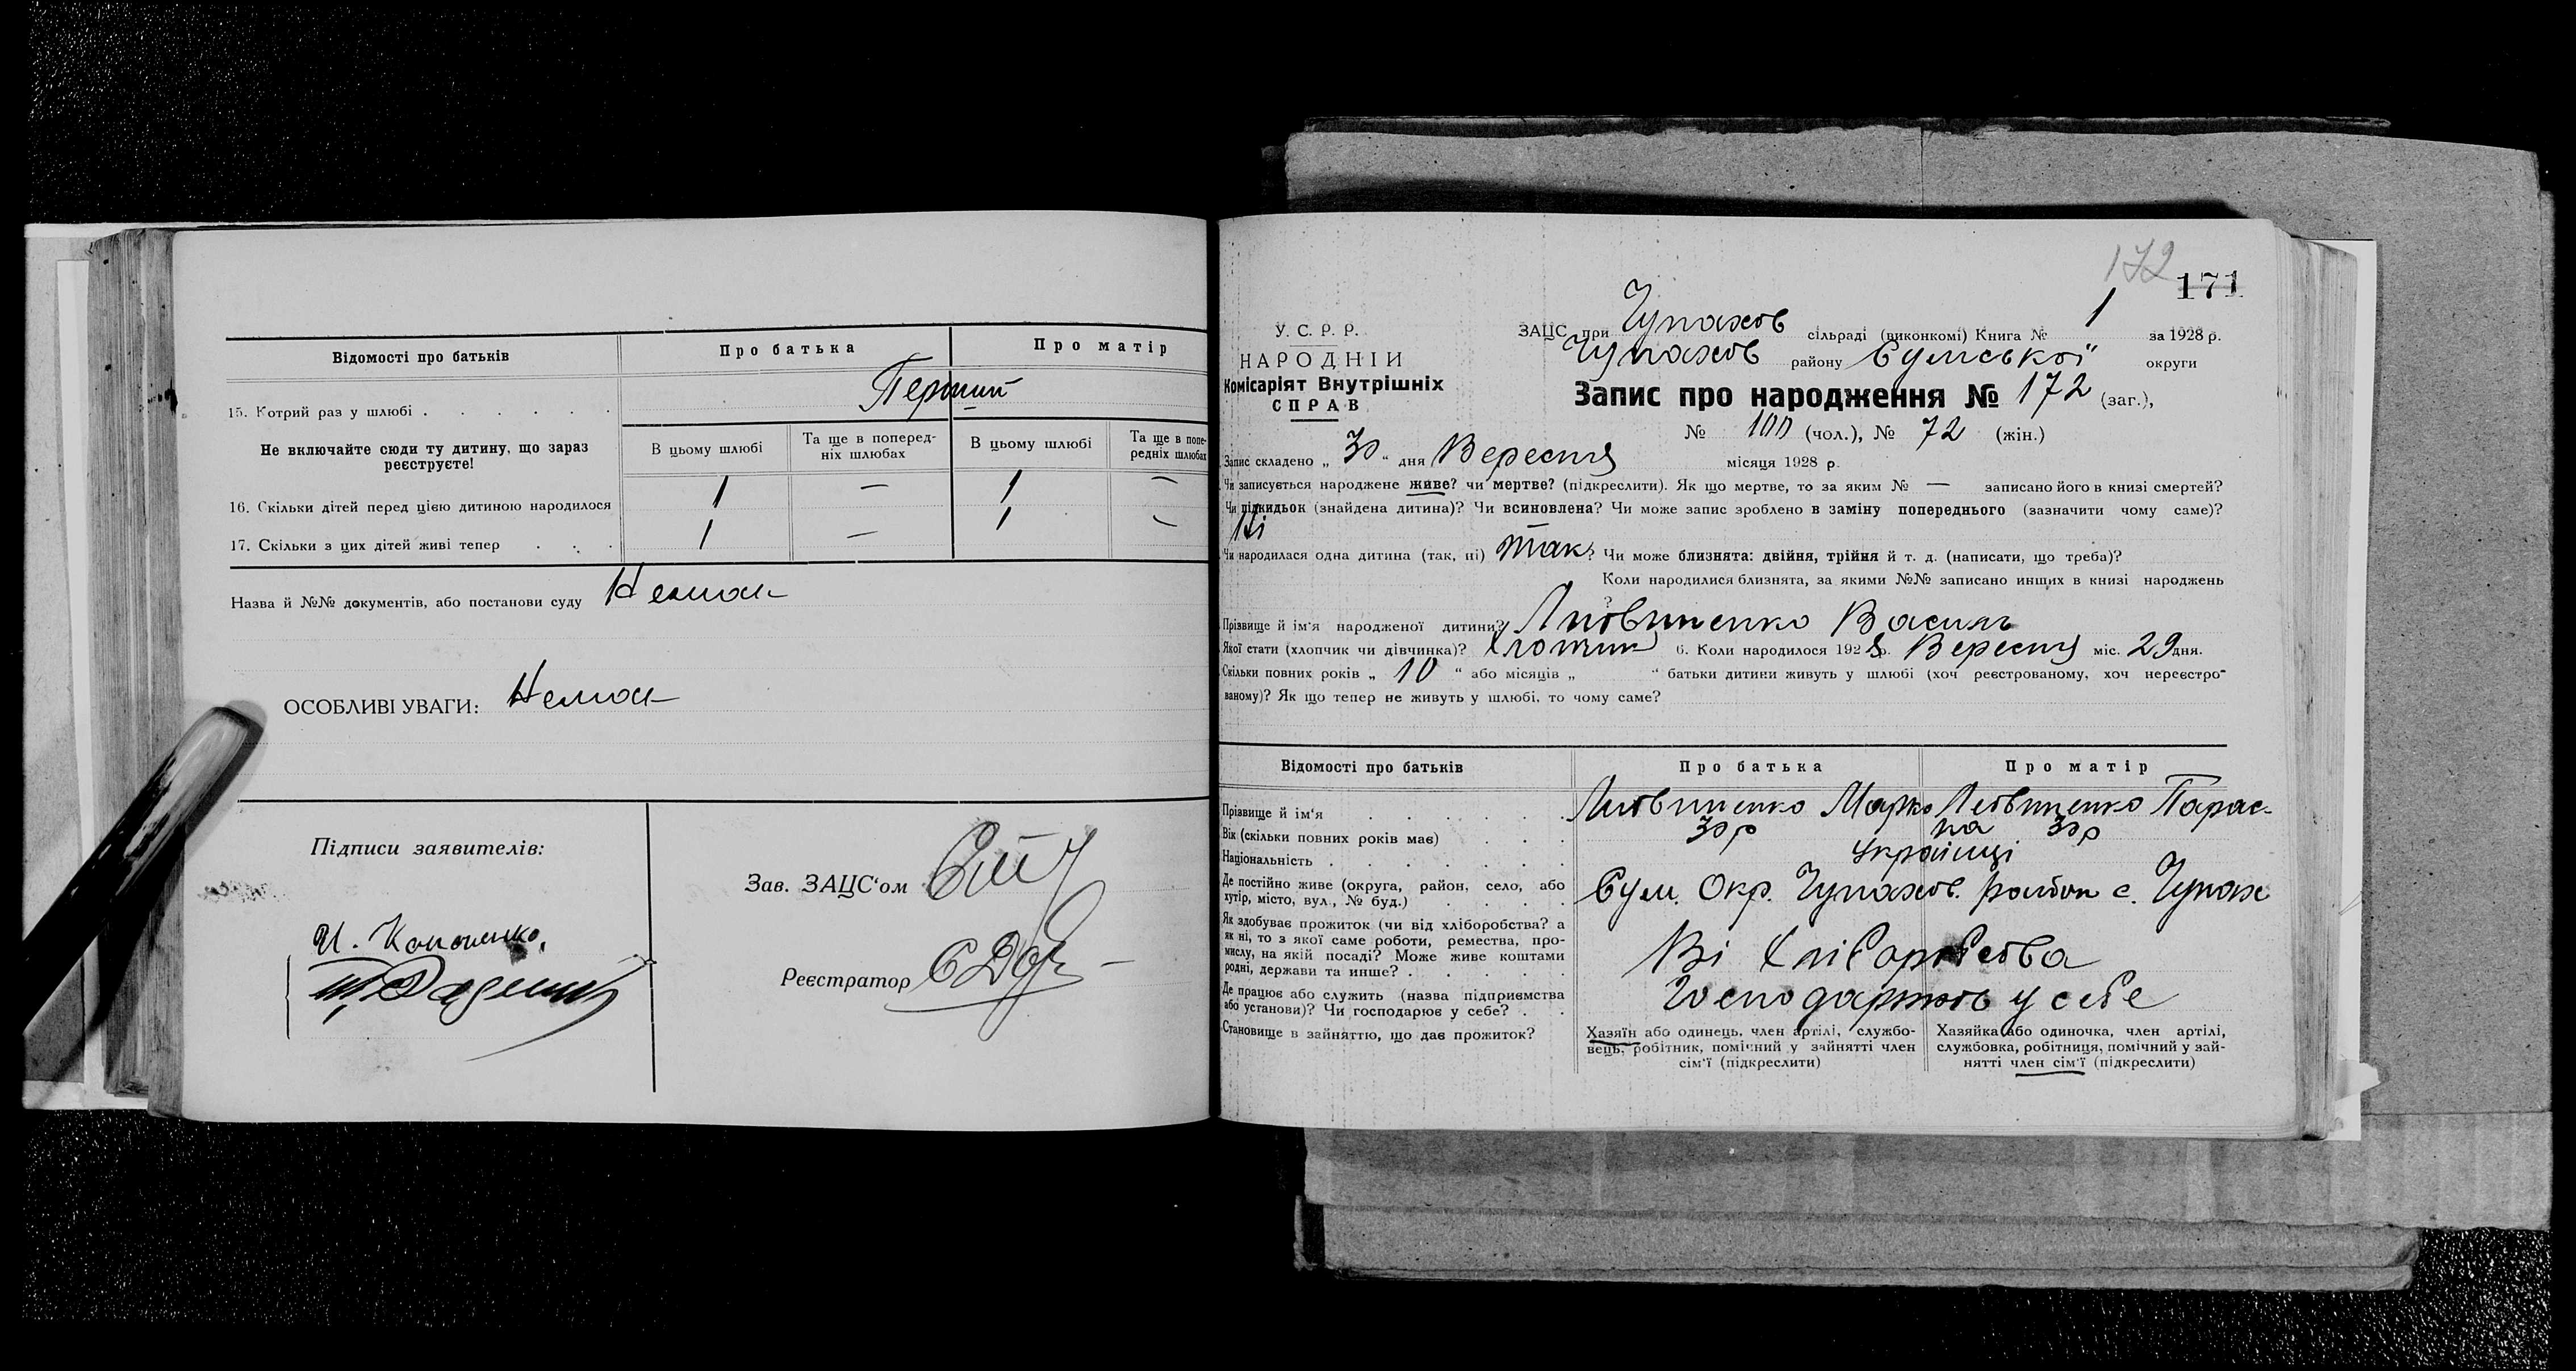 Відомості про батьків
Про батька
Про матір
15. Котрий раз у шлюбі . . . . . .
Перший
Не включайте сюди ту дитину, що зараз
реєструєте!
В цьому шлюбі
Та ще в поперед-
ніх шлюбах
В цьому шлюбі
Та ще в попе-
редніх шлюбах
16. Скільки дітей перед цією дитиною народилося
1 — 1 —
17. Скільки з цих дітей живі тепер . . .
1 — 1 —
Назва й №№ документів, або постанови суду Немає
ОСОБЛИВІ УВАГИ: Немає
Підписи заявителів:
И. Кононенко
Зав. ЗАЦС'ом
Реєстратор
172
171
У. С. Р. Р.
НАРОДНІЙ
Комісаріят Внутрішніх
СПРАВ
ЗАЦС при Чупахов сільраді (виконкомі) Книга № 1 за 1928 р.
Чупахов району Сумської округи
Запис про народження № 172 (заг.),
№ 100 (чол.), № 72 (жін.)
Запис складено „ 30 “ дня Вересня місяця 1928 р.
Чи записується народжене живе? чи мертве? (підкреслити). Як що мертве, то за яким № — записано його в книзі смертей?
Чи підкидьок (знайдена дитина)? Чи всиновлена? Чи може запис зроблено в заміну попереднього (зазначити чому саме)?
Ні
Чи народилася одна дитина (так, ні) Так ? Чи може близнята: двійня, трійня й т. д. (написати, що треба)?
Коли народилися близнята, за якими №№ записано инших в книзі народжень
?
Прізвище й ім'я народженої дитини? Литвиненко Василь
Якої стати (хлопчик чи дівчинка)? Хлопчик 6. Коли народилося 1928 р. Вересня міс. 29 дня.
Скільки повних років „ 10 “ або місяців „ “ батьки дитини живуть у шлюбі (хоч реєстрованому, хоч нереєстро-
ваному)? Як що тепер не живуть у шлюбі, то чому саме?
Відомості про батьків
Про батька
Про матір
Прізвище й ім'я . . . . . .
Литвиненко Марко
Литвиненко Парас-
ка
Вік (скільки повних років має) . . .
30 р
30 р
Національність . . . . . . .
Українці
Де постійно живе (округа, район, село, або
хутір, місто, вул., № буд.) . . . .
Сум. Окр. Чупахов. район с. Чупах
Як здобуває прожиток (чи від хліборобства? а
як ні, то з якої саме роботи, ремества, про-
мислу, на якій посаді? Може живе коштами
родні, держави та инше? . . . . .
Ві Хліборобства
Де працює або служить (назва підприємства
або установи)? Чи господарює у себе? . .
Господарюють у себе
Становище в зайняттю, що дає прожиток?
Хазяїн або одинець, член артілі, службо-
вець, робітник, помічний у зайнятті член
сім'ї (підкреслити)
Хазяйка або одиночка, член артілі,
службовка, робітниця, помічний у зай-
нятті член сім'ї (підкреслити)